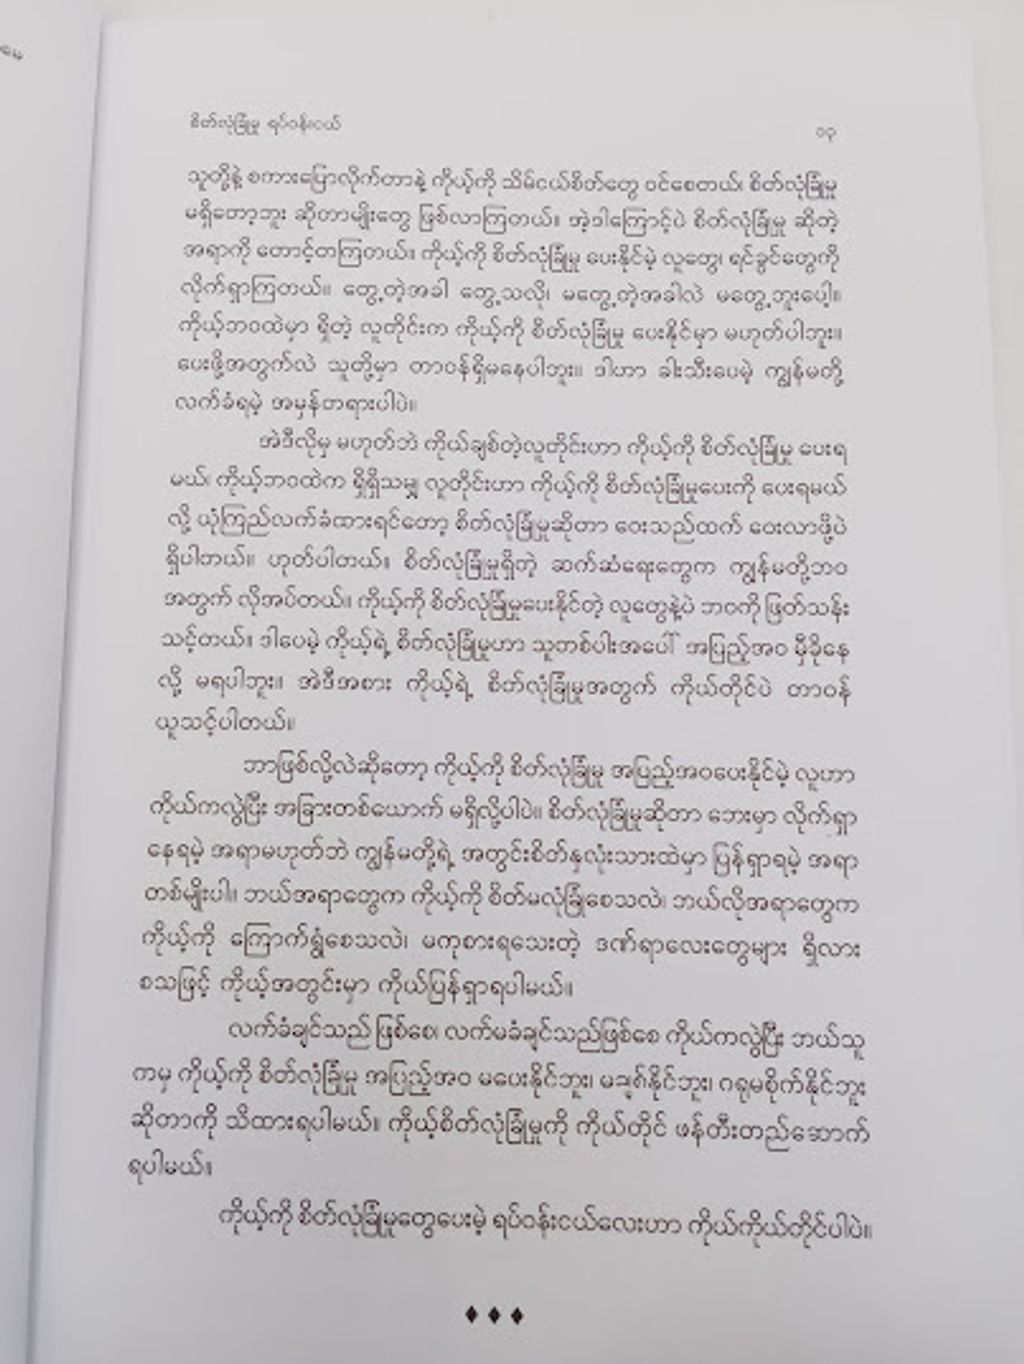 စိတ်လုံခြုံမှု ရပ်ဝန်းငယ်
၁၃
သူတို့နဲ့ စကားပြောလိုက်တာနဲ့ ကိုယ့်ကို သိမ်ငယ်စိတ်တွေ ဝင်စေတယ်၊ စိတ်လုံခြုံမှု
မရှိတော့ဘူး ဆိုတာမျိုးတွေ ဖြစ်လာကြတယ်။ အဲ့ဒါကြောင့်ပဲ စိတ်လုံခြုံမှု ဆိုတဲ့
အရာကို တောင့်တကြတယ်။ ကိုယ့်ကို စိတ်လုံခြုံမှု ပေးနိုင်မဲ့ လူတွေ၊ ရင်ခွင်တွေကို
လိုက်ရှာကြတယ်။ တွေ့တဲ့အခါ တွေ့သလို၊ မတွေ့တဲ့အခါလဲ မတွေ့ဘူးပေါ့။
ကိုယ့်ဘဝထဲမှာ ရှိတဲ့ လူတိုင်းက ကိုယ့်ကို စိတ်လုံခြုံမှု ပေးနိုင်မှာ မဟုတ်ပါဘူး။
ပေးဖို့အတွက်လဲ သူတို့မှာ တာဝန်ရှိမနေပါဘူး။ ဒါဟာ ခါးသီးပေမဲ့ ကျွန်မတို့
လက်ခံရမဲ့ အမှန်တရားပါပဲ။
အဲဒီလိုမှ မဟုတ်ဘဲ ကိုယ်ချစ်တဲ့လူတိုင်းဟာ ကိုယ့်ကို စိတ်လုံခြုံမှု ပေးရ
မယ်၊ ကိုယ့်ဘဝထဲက ရှိရှိသမျှ လူတိုင်းဟာ ကိုယ့်ကို စိတ်လုံခြုံမှုပေးကို ပေးရမယ်
လို့ ယုံကြည်လက်ခံထားရင်တော့ စိတ်လုံခြုံမှုဆိုတာ ဝေးသည်ထက် ဝေးလာဖို့ပဲ
ရှိပါတယ်။ ဟုတ်ပါတယ်။ စိတ်လုံခြုံမှုရှိတဲ့ ဆက်ဆံရေးတွေက ကျွန်မတို့ဘဝ
အတွက် လိုအပ်တယ်။ ကိုယ့်ကို စိတ်လုံခြုံမှုပေးနိုင်တဲ့ လူတွေနဲ့ပဲ ဘဝကို ဖြတ်သန်း
သင့်တယ်။ ဒါပေမဲ့ ကိုယ့်ရဲ့ စိတ်လုံခြုံမှုဟာ သူတစ်ပါးအပေါ် အပြည့်အဝ မှီခိုနေ
လို့ မရပါဘူး။ အဲဒီအစား ကိုယ့်ရဲ့ စိတ်လုံခြုံမှုအတွက် ကိုယ်တိုင်ပဲ တာဝန်
ယူသင့်ပါတယ်။
ဘာဖြစ်လို့လဲဆိုတော့ ကိုယ့်ကို စိတ်လုံခြုံမှု အပြည့်အဝပေးနိုင်မဲ့ လူဟာ
ကိုယ်ကလွဲပြီး အခြားတစ်ယောက် မရှိလို့ပါပဲ။ စိတ်လုံခြုံမှုဆိုတာ ဘေးမှာ လိုက်ရှာ
နေရမဲ့ အရာမဟုတ်ဘဲ ကျွန်မတို့ရဲ့ အတွင်းစိတ်နှလုံးသားထဲမှာ ပြန်ရှာရမဲ့ အရာ
တစ်မျိုးပါ။ ဘယ်အရာတွေက ကိုယ့်ကို စိတ်မလုံခြုံစေသလဲ၊ ဘယ်လိုအရာတွေက
ကိုယ့်ကို ကြောက်ရွံ့စေသလဲ၊ မကုစားရသေးတဲ့ ဒဏ်ရာလေးတွေများ ရှိလား
စသဖြင့် ကိုယ့်အတွင်းမှာ ကိုယ်ပြန်ရှာရပါမယ်။
လက်ခံချင်သည် ဖြစ်စေ၊ လက်မခံချင်သည်ဖြစ်စေ ကိုယ်ကလွဲပြီး ဘယ်သူ
ကမှ ကိုယ့်ကို စိတ်လုံခြုံမှု အပြည့်အဝ မပေးနိုင်ဘူး၊ မချစ်နိုင်ဘူး၊ ဂရုမစိုက်နိုင်ဘူး
ဆိုတာကို သိထားရပါမယ်။ ကိုယ့်စိတ်လုံခြုံမှုကို ကိုယ်တိုင် ဖန်တီးတည်ဆောက်
ရပါမယ်။
ကိုယ့်ကို စိတ်လုံခြုံမှုတွေပေးမဲ့ ရပ်ဝန်းငယ်လေးဟာ ကိုယ်ကိုယ်တိုင်ပါပဲ။